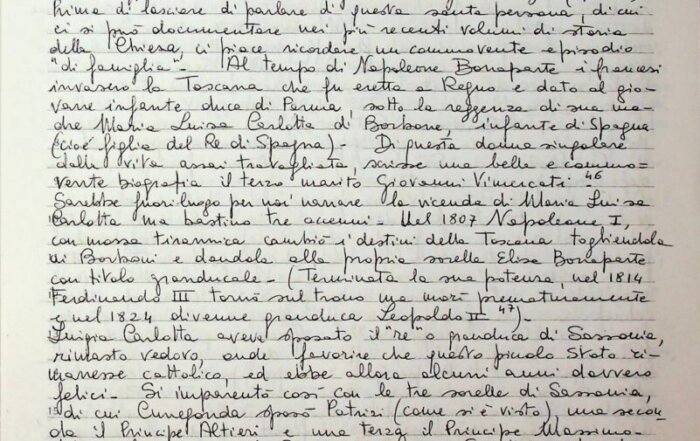 Prima di lasciare di parlare di questa santa persona, di cui
ci si può documentare nei più recenti volumi di storia
della Chiesa, ci piace ricordare un commovente episodio
"di famiglia". Al tempo di Napoleone Bonaparte i francesi
invasero la Toscana che fu eretta a Regno e dato al gio=
vane infante duca di Parma, sotto la reggenza di sua ma=
dre Maria Luisa Carlotta di Borbone, infante di Spagna
(cioè figlia del Re di Spagna) - Di questa donna singolare
dalla vita assai travagliata, scrisse una bella e commo=
vente biografia il terzo marito Giovanni Vimercati. 46
Sarebbe fuori luogo per noi narrare la vicenda di Maria Luisa
Carlotta ma bastino tre accenni - Nel 1807 Napoleone I,
con mossa tirannica cambiò i destini della Toscana togliendola
ai Borboni e dandola alla propria sorella Elisa Bonaparte
con titolo granducale - (Terminata la sua potenza, nel 1814
Ferdinando III tornò sul trono ma morì prematuramente
e nel 1824 divenne granduca Leopoldo II 47) -
Luigia Carlotta aveva sposato il "re" o granduca di Sassonia,
rimasto vedovo, onde favorire che questo piccolo Stato ri=
manesse cattolico, ed ebbe allora alcuni anni davvero
felici - Si imparentò così con le tre sorelle di Sassonia,
di cui Cunegonda sposò Patrizi (come si è visto), una secon=
da il Principe Altieri e una terza il Principe Massimo -